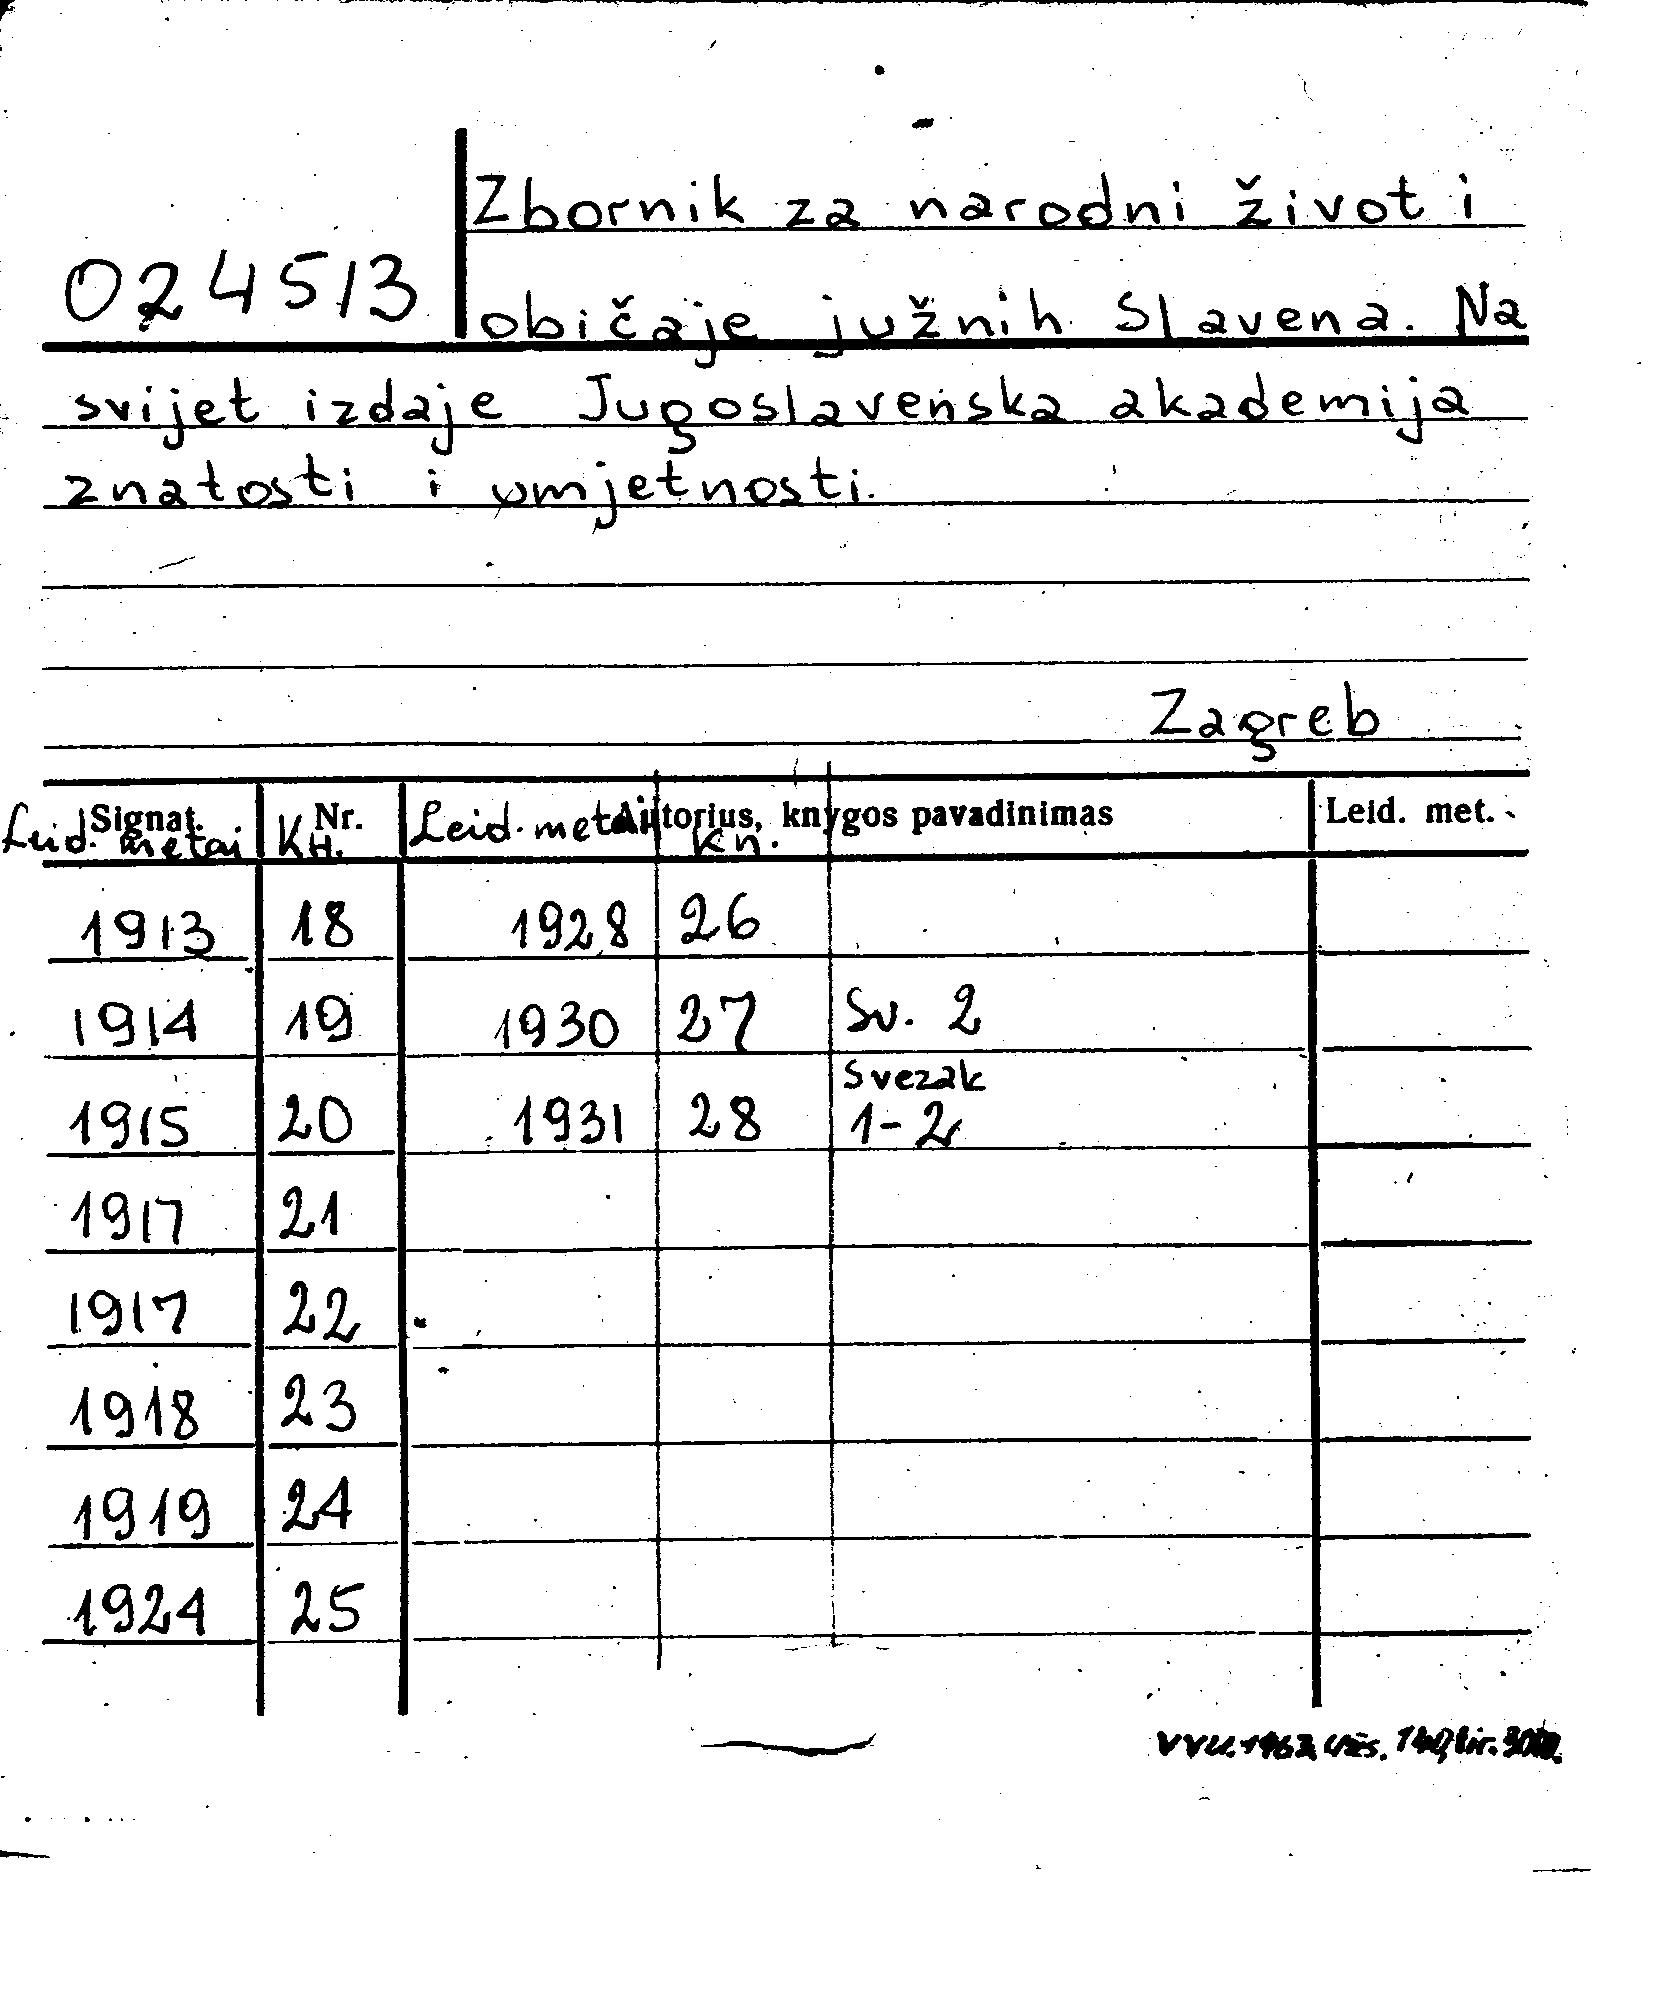 Zbornik za narodni život i
024513
običaje južnih Slavena. Na
svijet izdaje Jugoslavenska akademija
znatosti i umjetnosti.
Zagreb
Signat. Nr. Autorius, knygos pavadinimas Leid. met.
Leid. metai Kн. Leid. metai kn.
1913 18 1928 26
1914 19 1930 27 Sv. 2
1915 20 1931 28 Svezak 1-2
1917 21
1917 22
1918 23
1919 24
1924 25
VVU. Užs. tir.